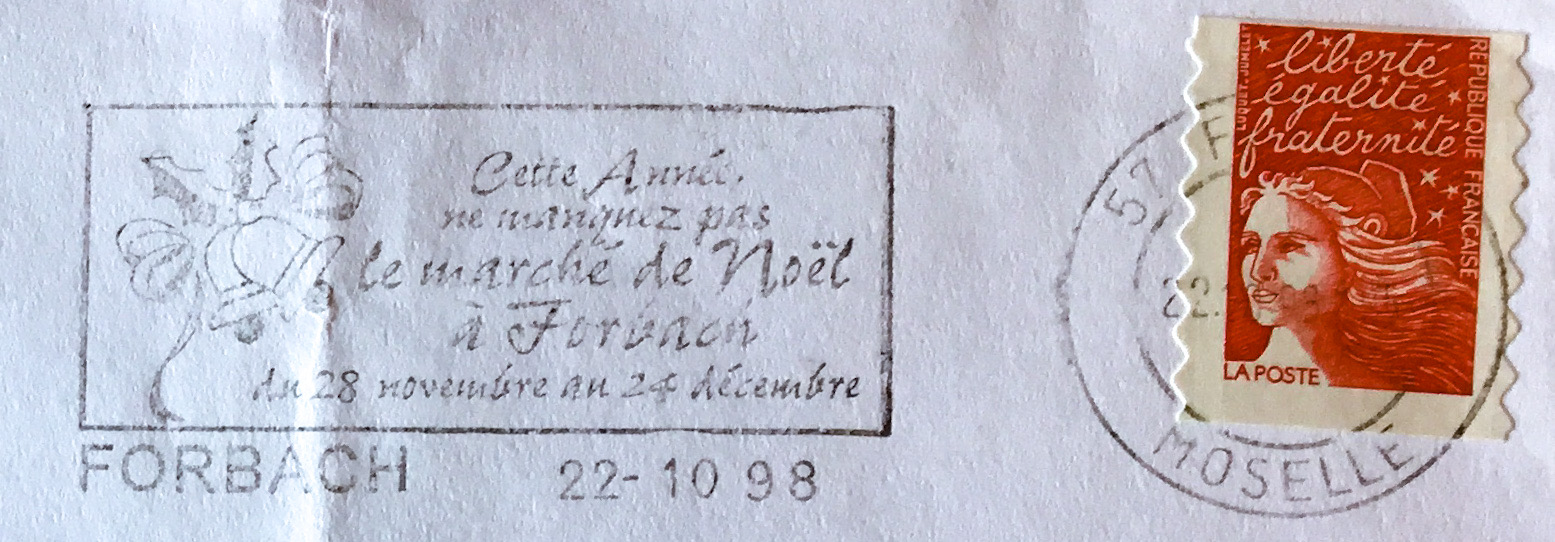 Cette Année,
ne manquez pas
le marché de Noël
à Forbach
du 28 novembre au 24 décembre
FORBACH 22-10 98
57 F
22.
MOSELLE
liberté
égalité
fraternité
RÉPUBLIQUE FRANÇAISE
LUQUET-JUMELET
LA POSTE